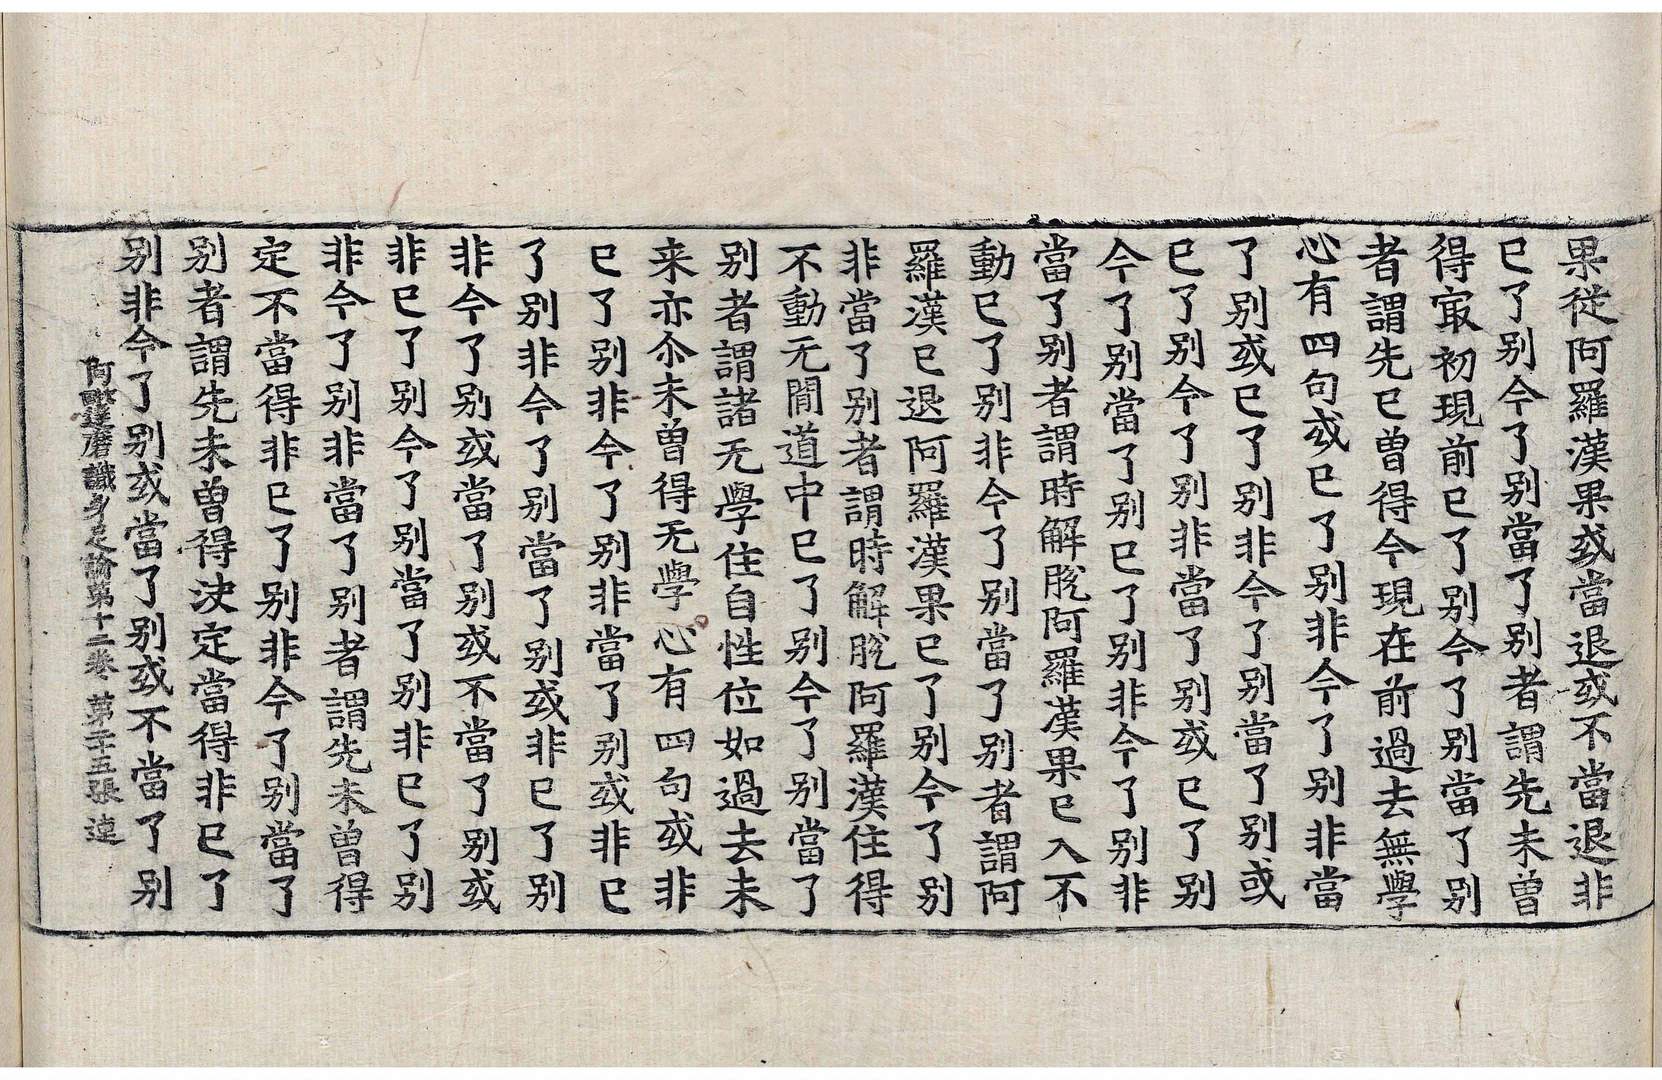 果從阿羅漢果或當退或不當退非
已了别今了别當了别者謂先未曾
得㝡初現前已了别今了别當了别
者謂先已曾得今現在前過去無學
心有四句或已了别非今了别非當
了别或已了别非今了别當了别或
已了别今了别非當了别或已了别
今了别當了别已了别非今了别非
當了别者謂時解脫阿羅漢果已入不
動已了别非今了别當了别者謂阿
羅漢已退阿羅漢果已了别今了别
非當了别者謂時解脫阿羅漢住得
不動无閒道中已了别今了别當了
别者謂諸无學住自性位如過去未
来亦尒未曾得无學心有四句或非
已了别非今了别非當了别或非已
了别非今了别當了别或非已了别
非今了别或當了别或不當了别或
非已了别今了别當了别非已了别
非今了别非當了别者謂先未曾得
定不當得非已了别非今了别當了
别者謂先未曾得決定當得非已了
别非今了别或當了别或不當了别
阿毗達磨識身足論第十二卷 第二十五張 遠